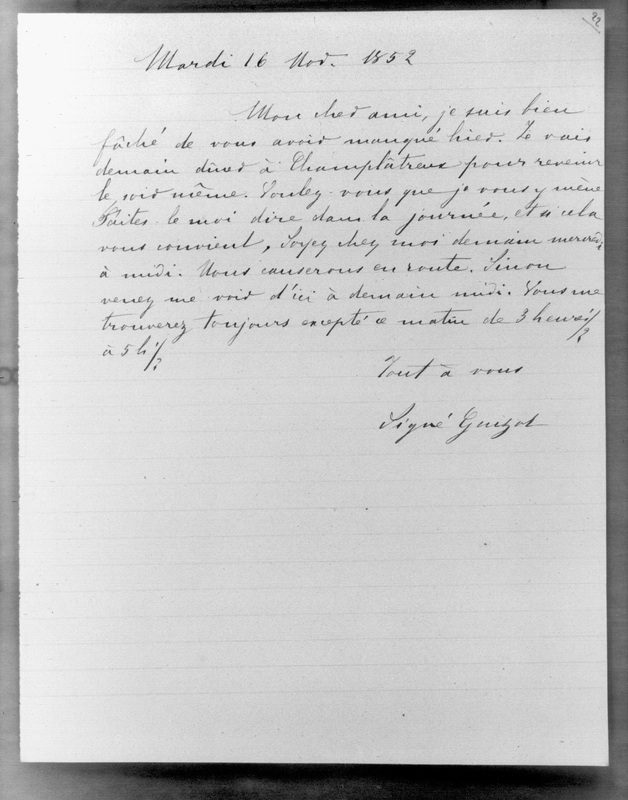 22
Mardi 16 Nov. 1852
Mon cher ami, je suis bien
fâché de vous avoir manqué hier. Je vais
demain dîner à Champlâtreux pour revenir
le soir même. Voulez-vous que je vous y mène
Faites-le moi dire dans la journée, et si cela
vous convient, soyez chez moi demain mercredi
à midi. Nous causerons en route. Sinon
venez me voir d'ici à demain midi. Vous me
trouverez toujours excepté ce matin de 3 heures 1/2
à 5 h 1/2
Tout à vous
Signé Guizot